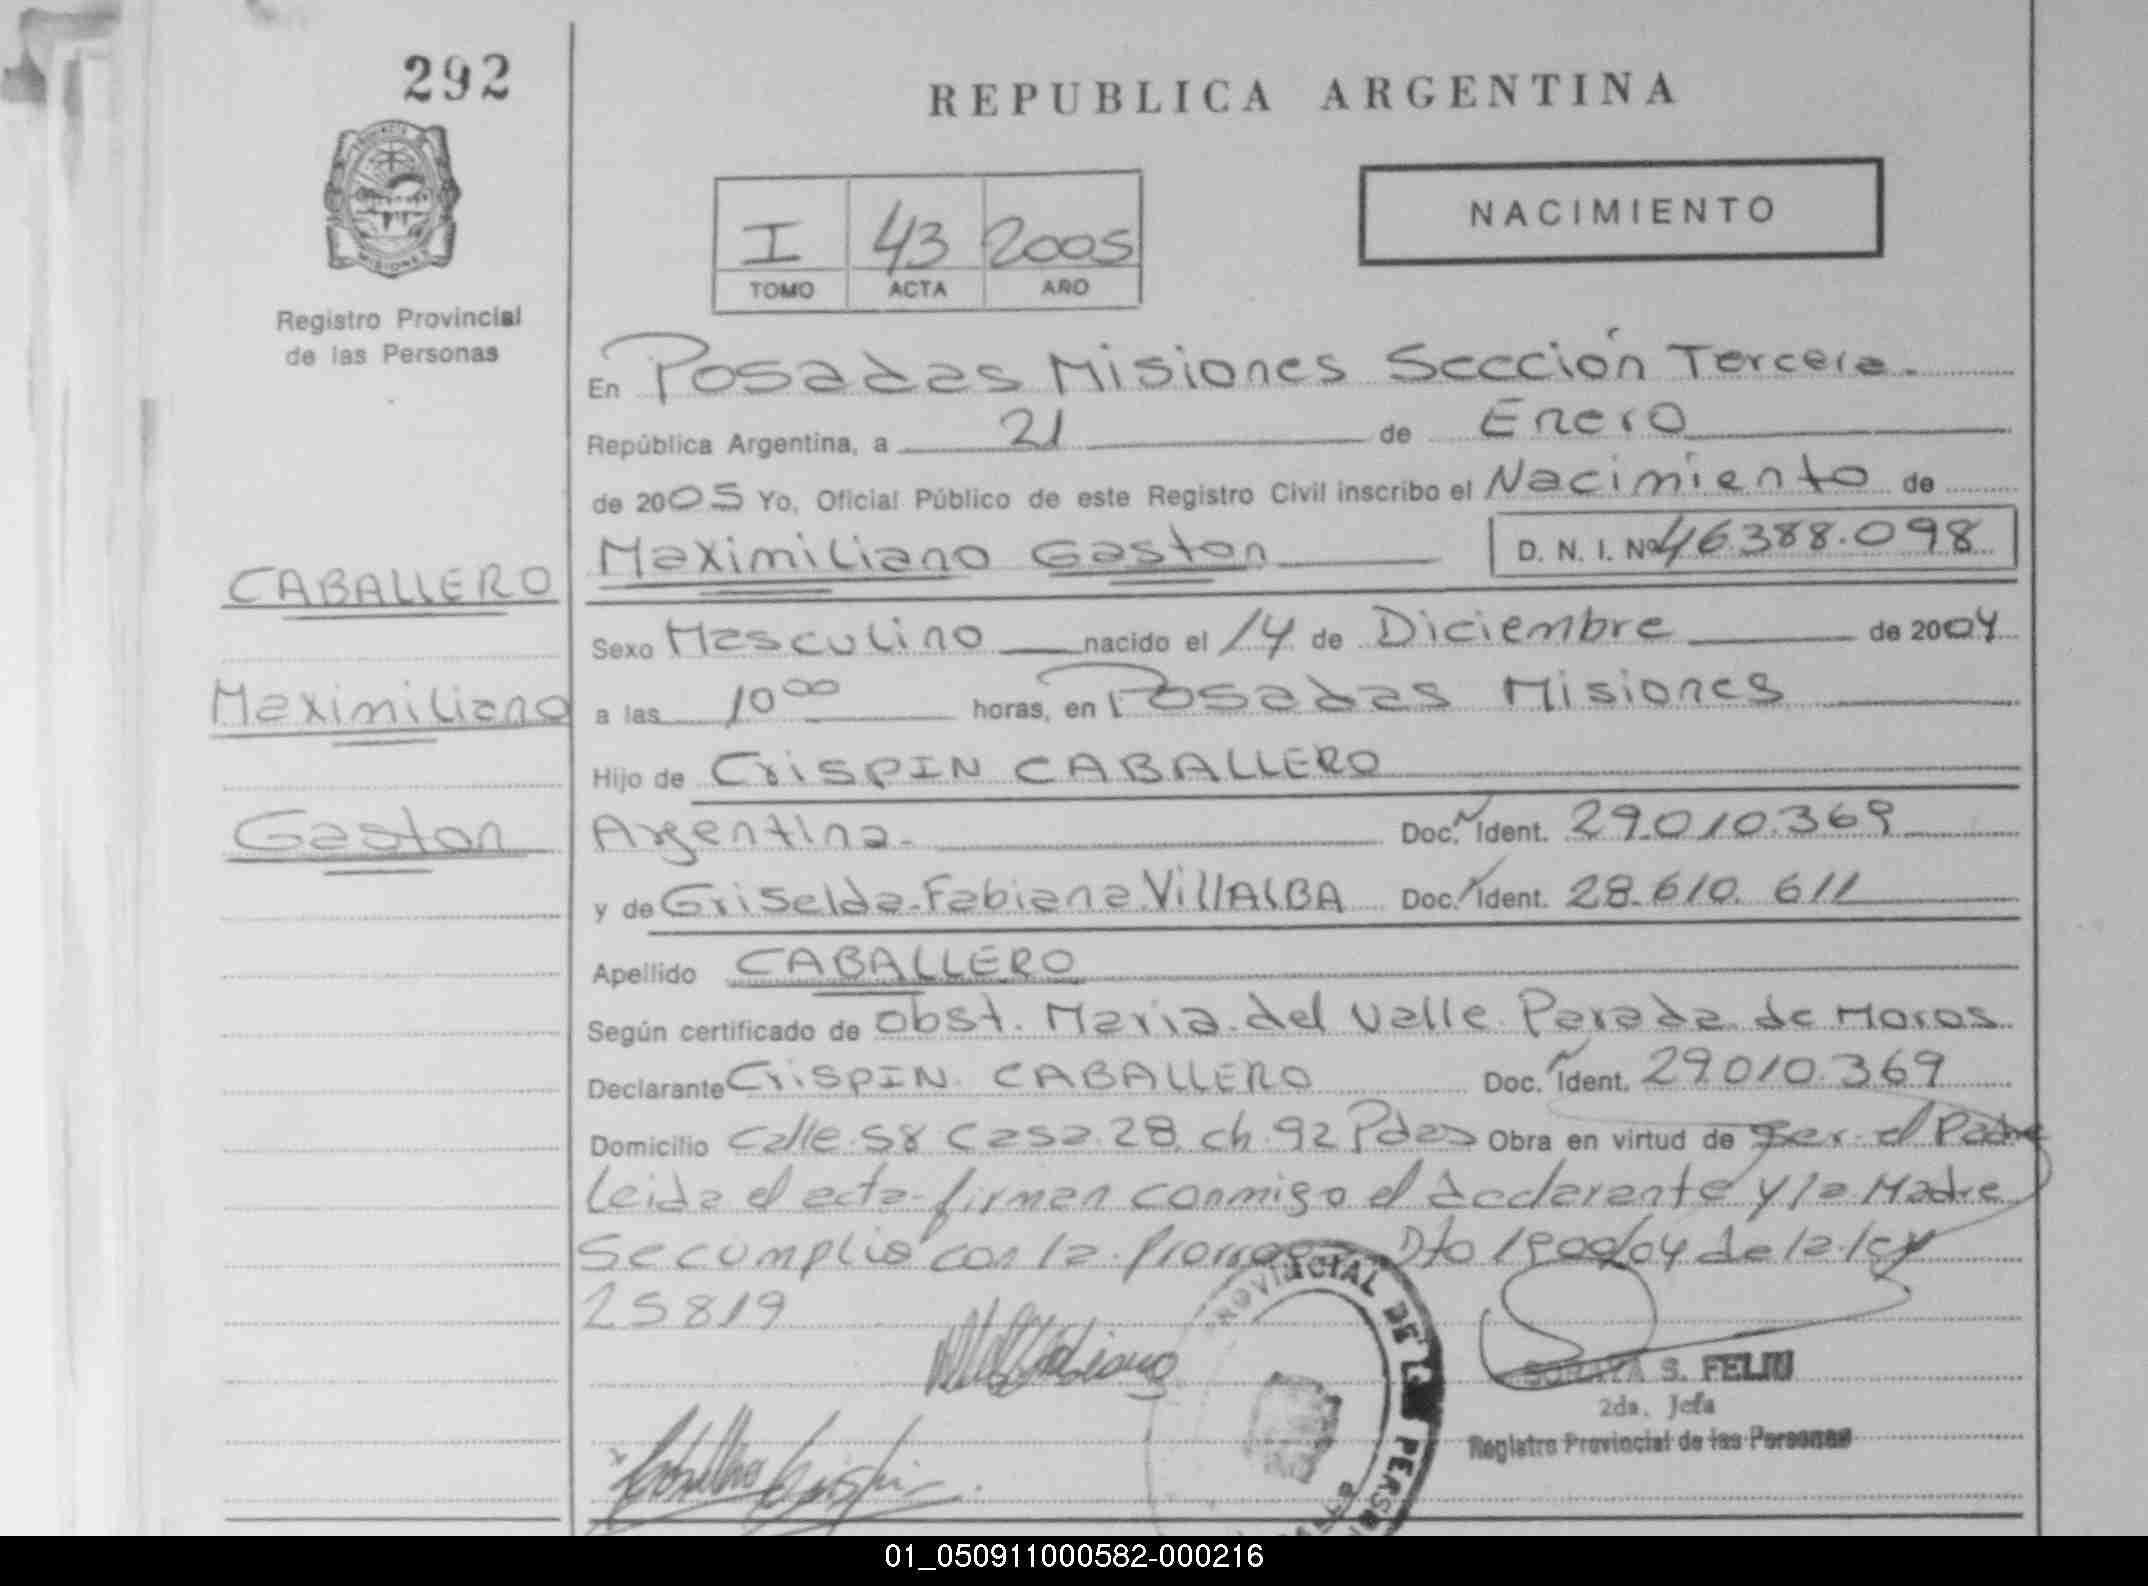 292
REPUBLICA ARGENTINA
MISIONES
Registro Provincial
de las Personas
I 43 2005
TOMO ACTA AÑO
NACIMIENTO
En Posadas Misiones Sección Tercera.
República Argentina, a 21 de Enero
de 2005 Yo, Oficial Público de este Registro Civil inscribo el Nacimiento de
CABALLERO
Maximiliano Gaston D. N. I. Nº 46.388.098
Sexo Masculino nacido el 14 de Diciembre de 2004
Maximiliano
a las 10 00 horas, en Posadas Misiones
Hijo de CrisPIN CABALLERO
Gaston
Argentina. Doc. Ident. 29.010.369
y de Griselda Fabiana VillALBA Doc. Ident. 28.610.611
Apellido CABALLERO
Según certificado de obst. Maria del Valle Parada de Moros
Declarante CrisPIN CABALLERO Doc. Ident. 29.010.369
Domicilio calle 58 casa 28 ch. 92 Pdas Obra en virtud de ser el Padre
Leida el acta firman conmigo el declarante y la Madre
Se cumplio con la Dto 1900/04 de la ley
25819
PROVINCIAL DE LAS PERSONAS
SORAYA S. FELIU
2da. Jefa
Registro Provincial de las Personas
01_050911000582-000216